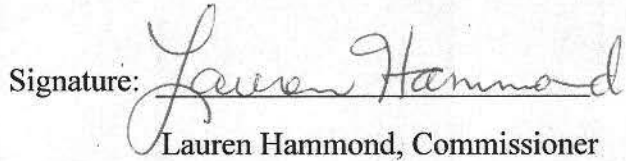 Signature: Lauren Hammond
Lauren Hammond, Commissioner